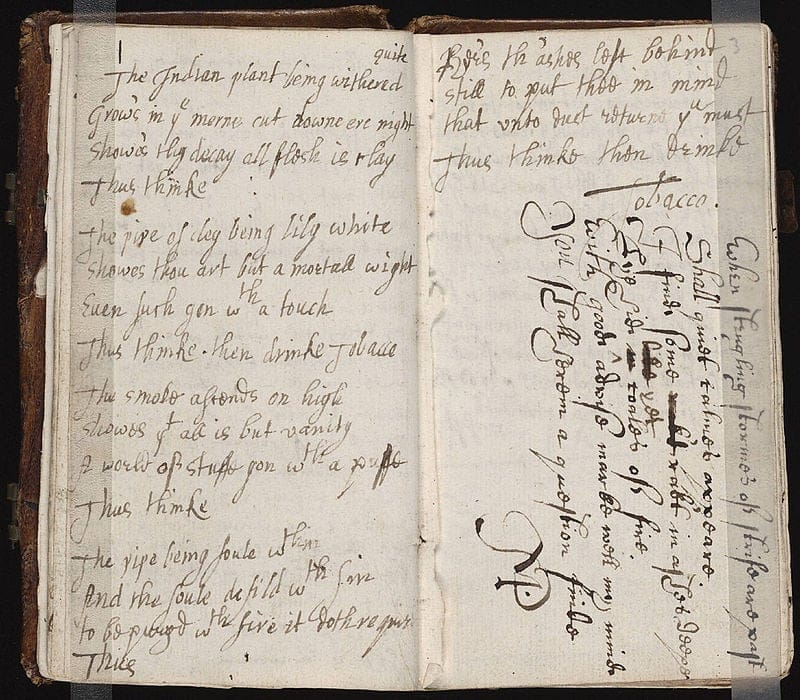 1
quite
The Indian plant being withered
Grow's in yᵉ morne cut downe ere night
Show's thy decay all flesh is clay
Thus thinke
The pipe of cley being lily white
Showes thou art but a mortall wight
Euen such gon wᵗʰ a touch
Thus thinke. then drinke Tobacco
The smoke ascends on high
Showes yᵗ all is but vanity
A world of stuffe gon wᵗʰ a puffe
Thus thinke
The pipe being foule wᵗʰin
And the soule defild wᵗʰ sin
to be purgd wᵗʰ fire it doth requir
Thus
3
th ashes left behind
still to put thee in mind
that vnto dust returne yᵘ must
Thus thinke then drinke
Tobacco.
When stingling stormes of strife are past
Shall quiet calmes appeare
I find some in ashes deepe
coales of fire.
with good advise marke well my minde
You shall herein a question finde